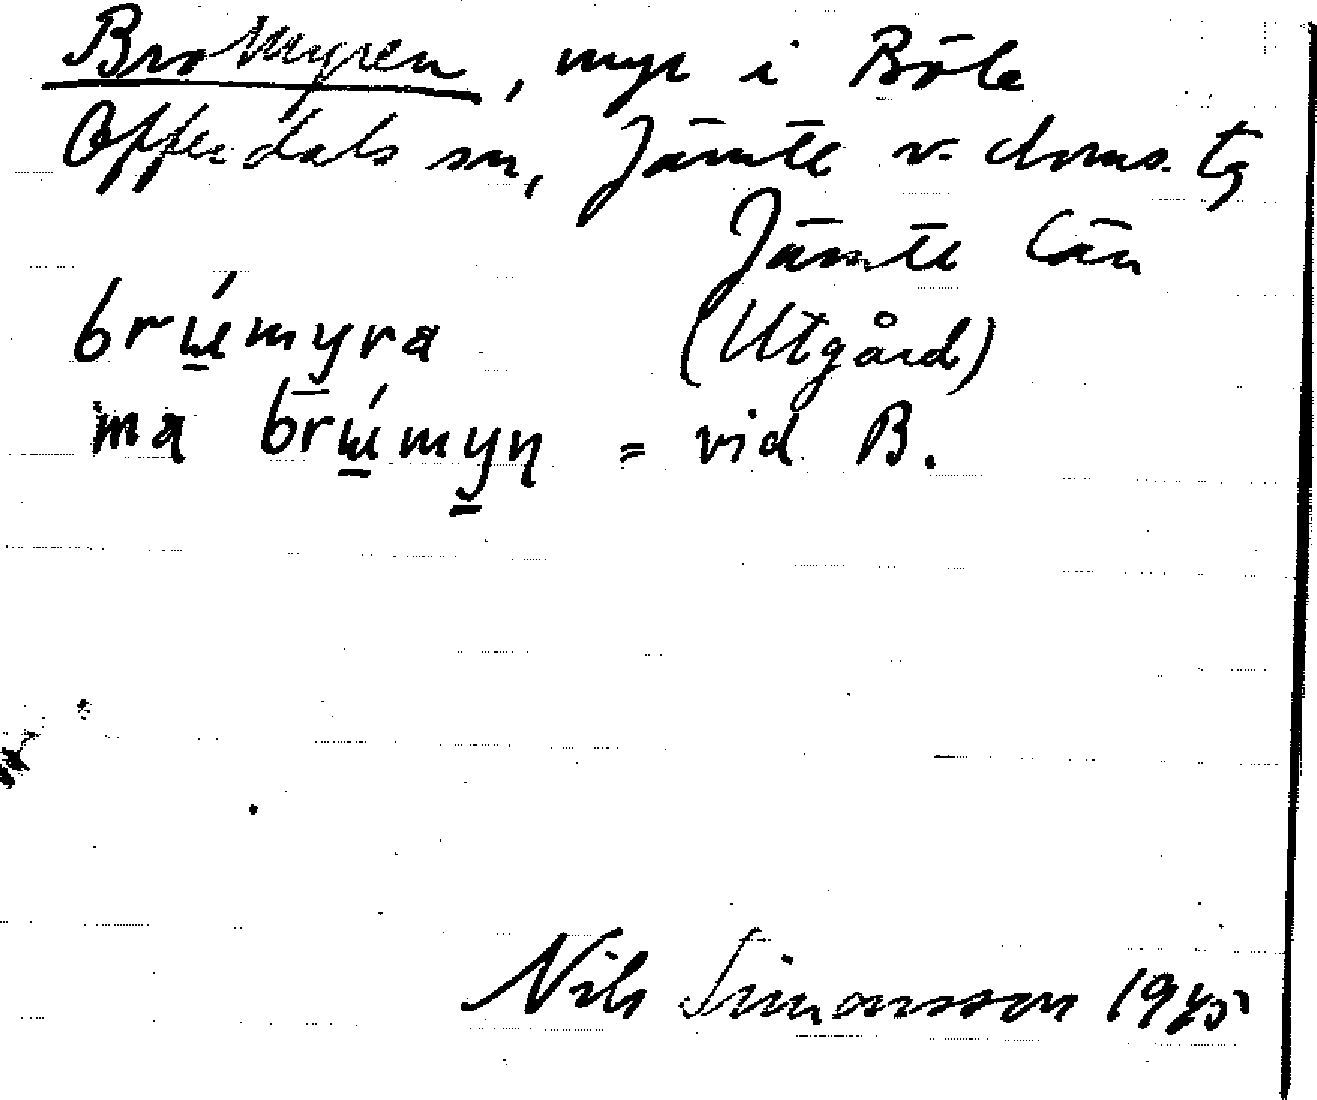 Bromyren, myr i Böle
Offerdals sn, Jämtl. v. doms. tg
Jämtl. län
brúmyra (Utgård)
ma brúmyn = vid B.
Nils Simonsson 1945